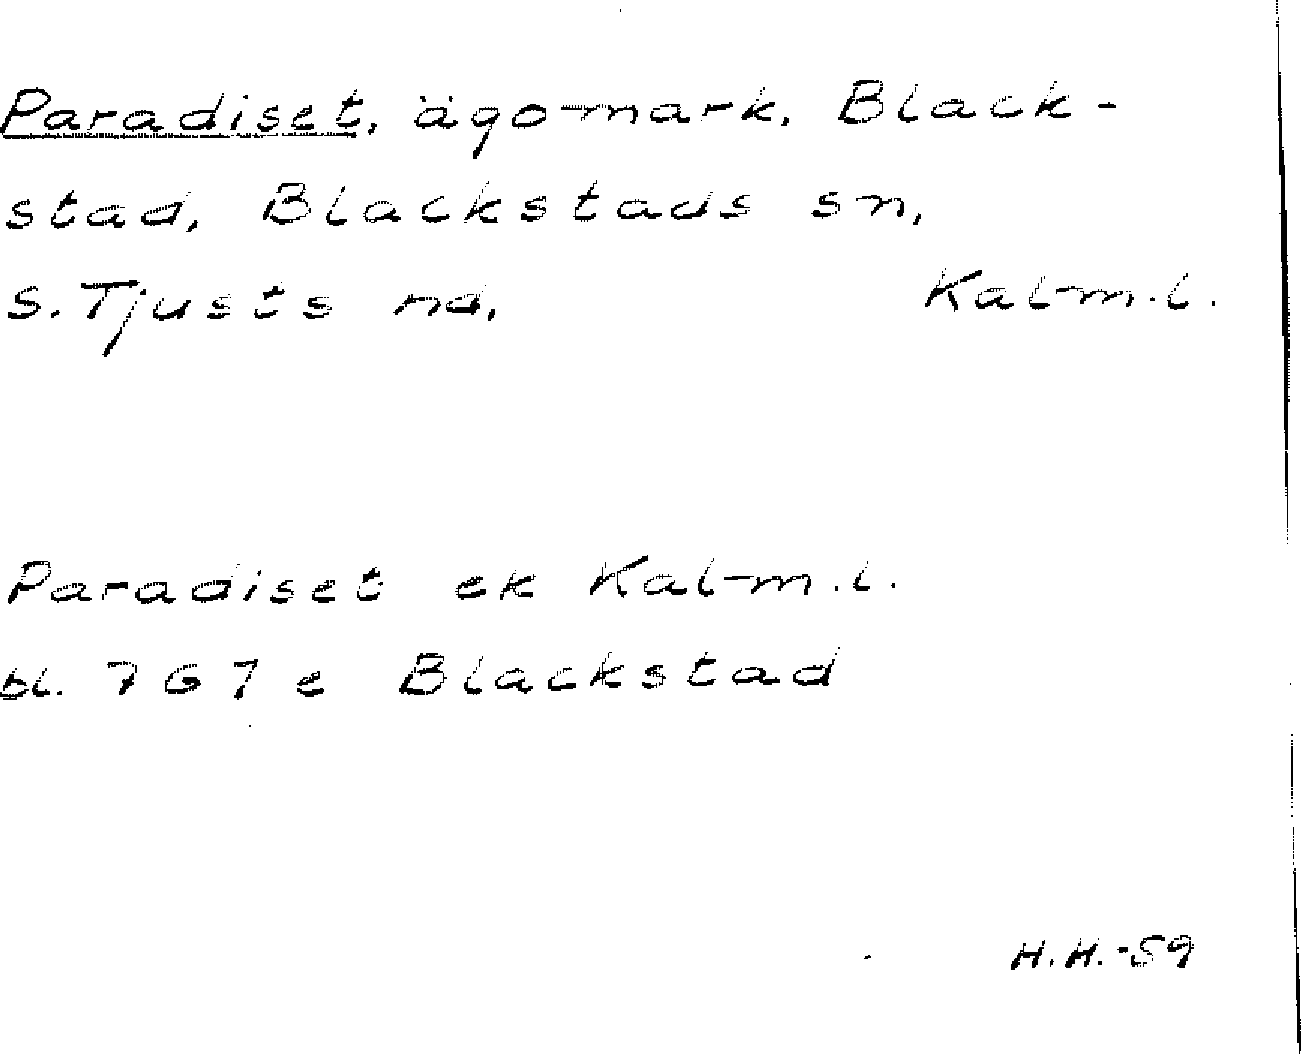 Paradiset, ägomark, Black-
stad, Blackstads sn,
S. Tjusts hd,   Kalm.l.
Paradiset ek Kalm.l.
bl. 767 e Blackstad
H.H.-59